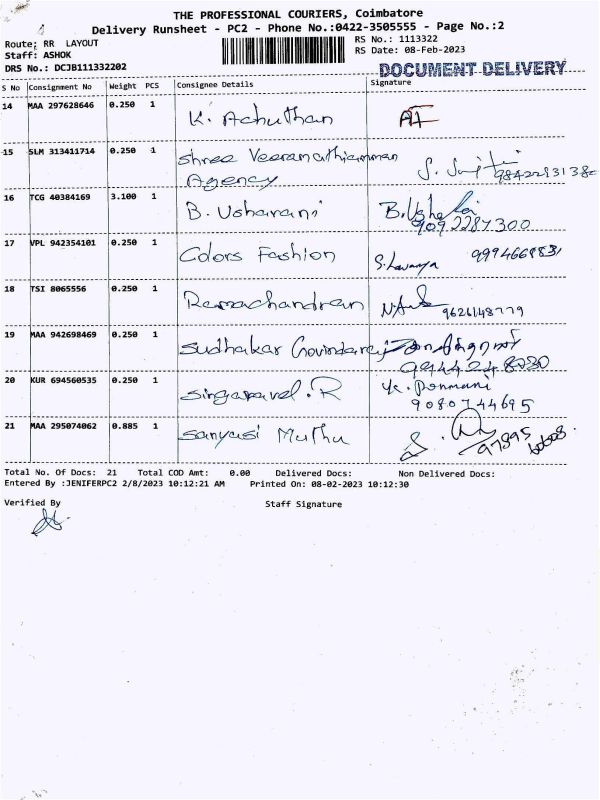 THE PROFESSIONAL COURIERS, Coimbatore
Delivery Runsheet - PC2 - Phone No.:0422-3505555 - Page No.:2
Route: RR LAYOUT
RS No.: 1113322
Staff: ASHOK
RS Date: 08-Feb-2023
DRS No.: DCJB111332202
DOCUMENT DELIVERY
S No Consignment No Weight PCS Consignee Details Signature
14 MAA 297628646 0.250 1 K. Achuthan
15 SLM 313411714 0.250 1 Shree Veeramathiamman
Agency
16 TCG 40384169 3.100 1 B. Usharani B. Usha
9092287300
17 VPL 942354101 0.250 1 Colors Fashion S. Lavanya
18 TSI 8065556 0.250 1 Ramachandran 9626148779
19 MAA 942698469 0.250 1 Sudhakar Govindaraj
9944248030
20 KUR 694560535 0.250 1 Singaravel. R Ponmani
9080744695
21 MAA 295074062 0.885 1 Sanyasi Muthu
Total No. Of Docs: 21 Total COD Amt: 0.00 Delivered Docs: Non Delivered Docs:
Entered By :JENIFERPC2 2/8/2023 10:12:21 AM Printed On: 08-02-2023 10:12:30
Verified By Staff Signature